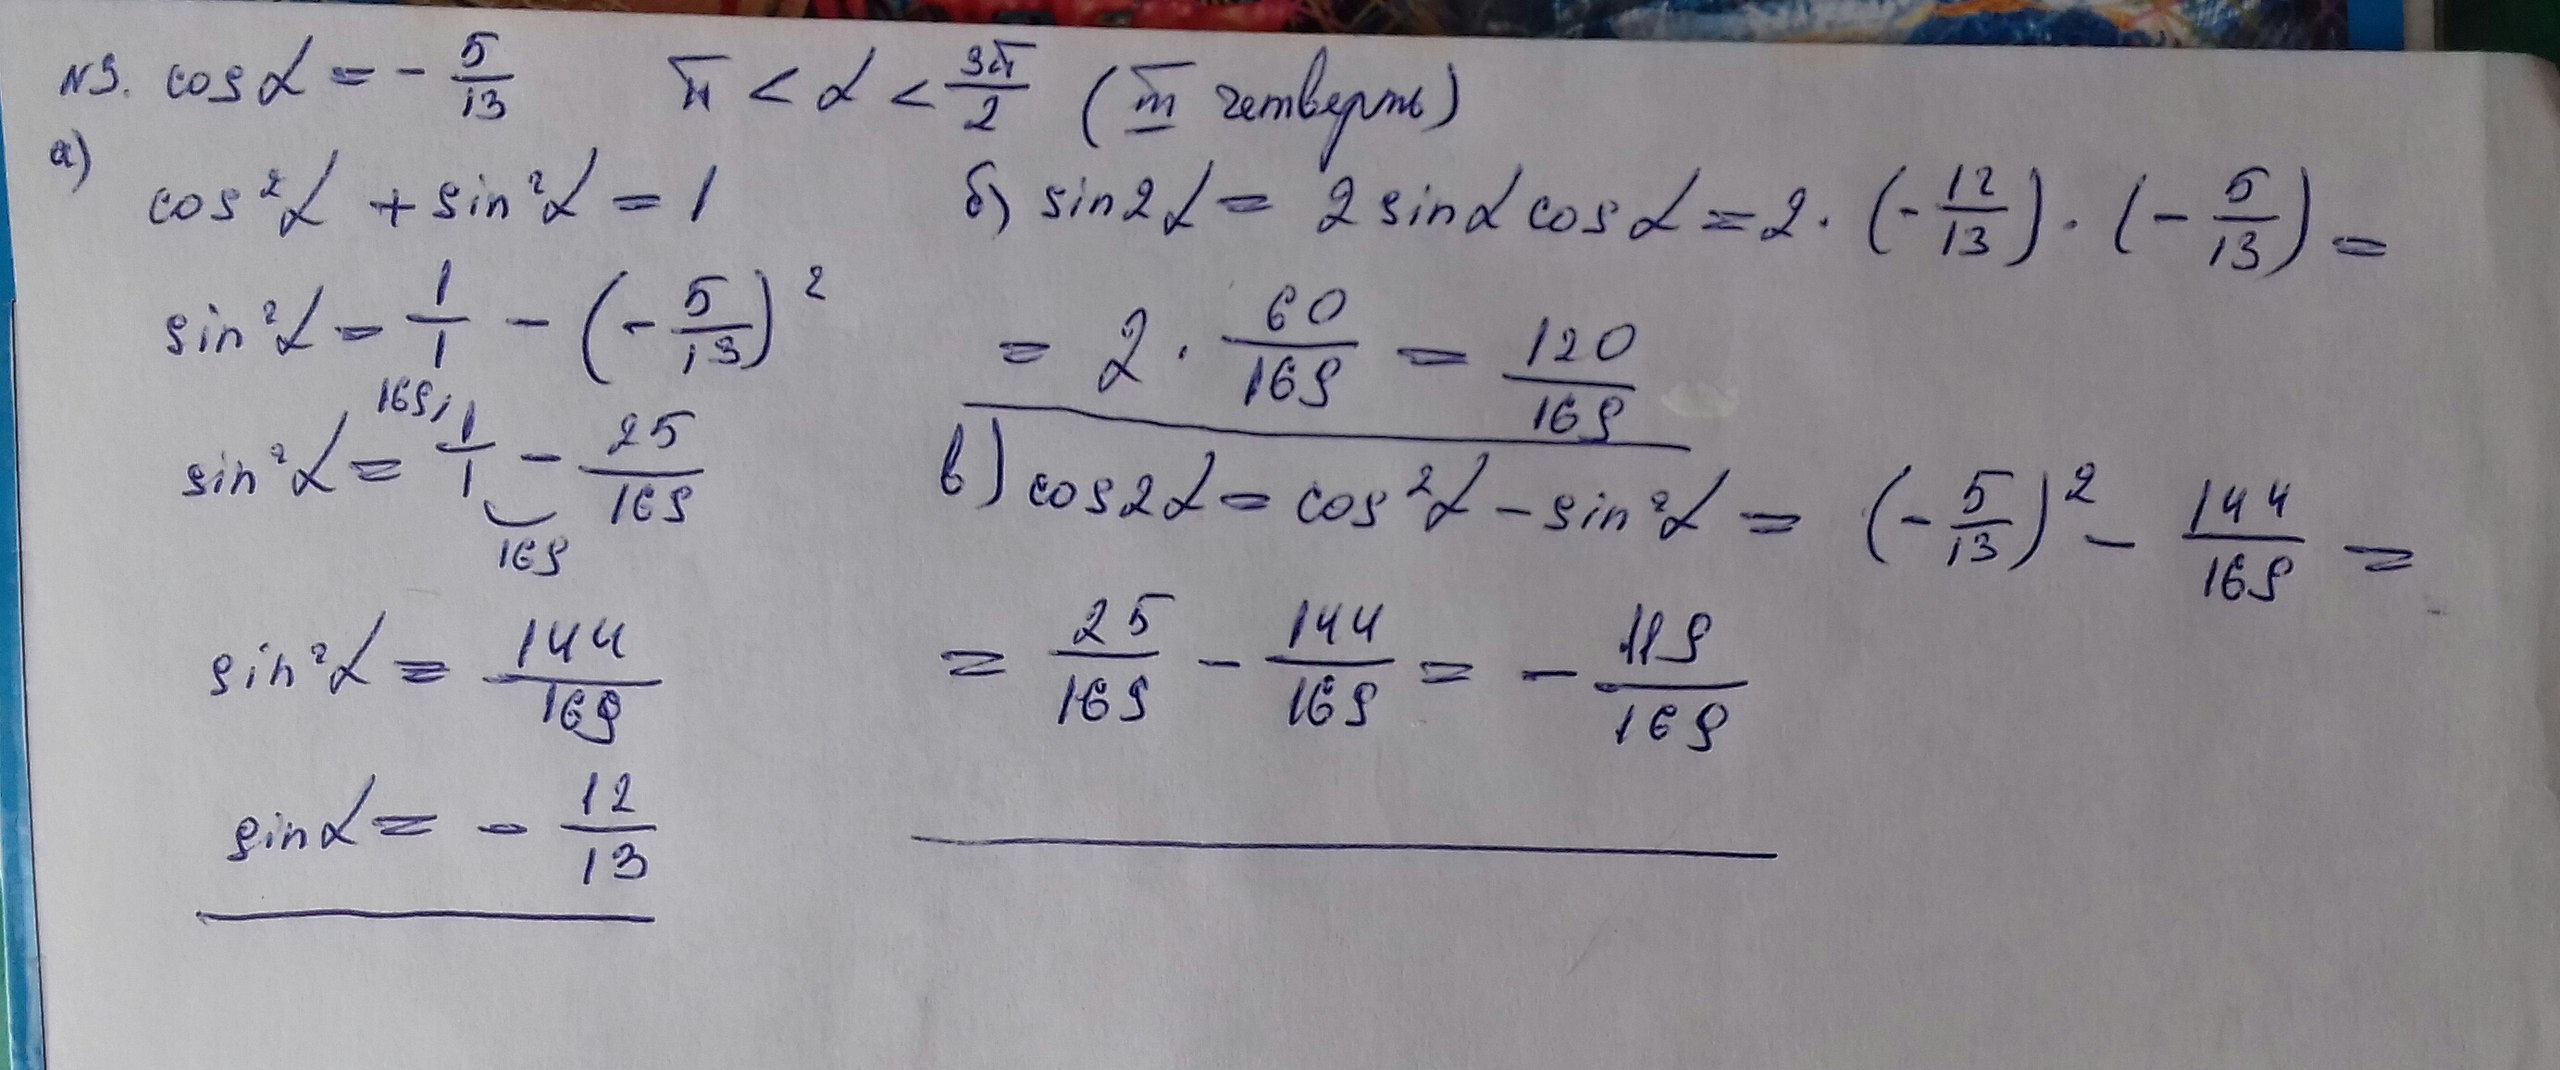 N3. cos α = - 5/13   π < α < 3π/2 (III четверть)
а)
cos²α + sin²α = 1
sin²α = 1/1 - (- 5/13)²
sin²α = 169/ 1/1 - 25/169
169
sin²α = 144/169
sin α = - 12/13
б) sin2α = 2 sinα cosα = 2 · (- 12/13) · (- 5/13) =
= 2 · 60/169 = 120/169
в) cos2α = cos²α - sin²α = (- 5/13)² - 144/169 =
= 25/169 - 144/169 = - 119/169